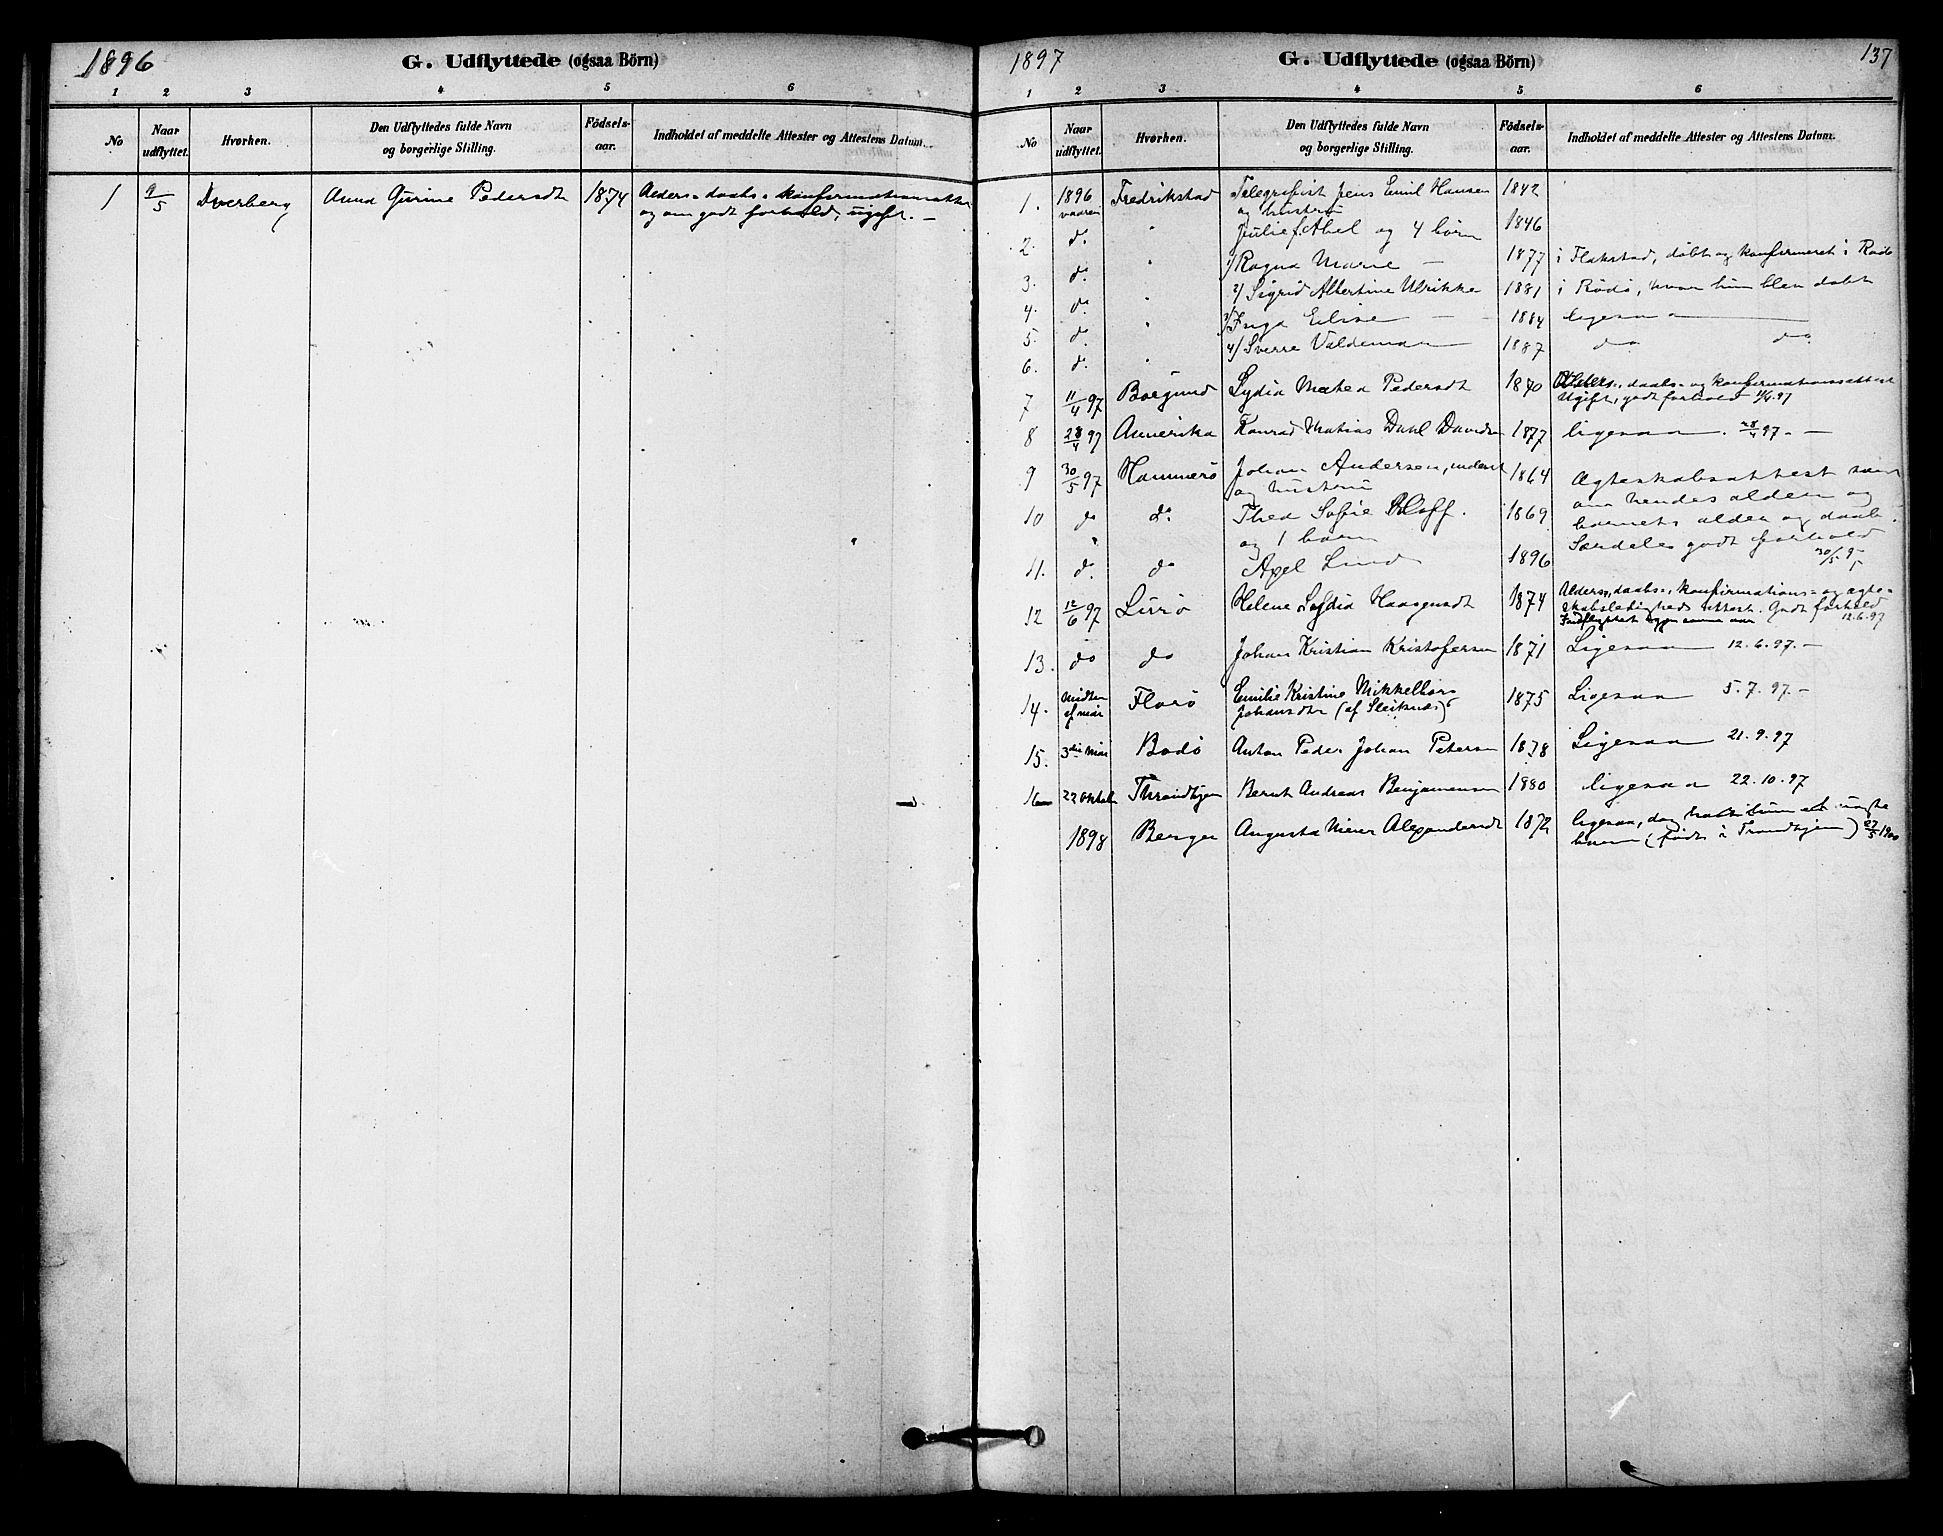 1896
G. Udflyttede (ogsaa Börn)
1 2 3 4 5 6
No
Naar udflyttet.
Hvorhen.
Den Udflyttedes fulde Navn og borgerlige Stilling.
Födsels-aar.
Indholdet af meddelte Attester og Attestens Datum.
1 9/5 Dverberg Anna Gurine Pedersdt 1874 Alders- daabs- konfirmationsattest
og om godt forhold, ugift. –
1897
G. Udflyttede (ogsaa Börn)
137
1 2 3 4 5 6
No
Naar udflyttet.
Hvorhen.
Den Udflyttedes fulde Navn og borgerlige Stilling.
Födsels-aar.
Indholdet af meddelte Attester og Attestens Datum.
1. 1896 vaaren Fredrikstad Telegrafist Jens Emil Hansen 1842
og hustru
2. do " Julie f. Abel og 4 börn 1846
3. do " 1/ Ragna Marie – 1877 i Flakstad, döbt og konfirmeret i Rödö
4. do " 2/ Sigrid Albertine Ulrikke 1881 i Rödö, hvor hun blev döbt
5. do " 3/ Inga Elise – 1884 ligesaa
6. do " 4/ Sverre Valdemar 1887 do do
7 11/4 97 Borgund Lydia Mathea Pedersdt 1870 Alders-, daabs- og konfirmationsattest
Ugift, godt forhold 11/4 97
8 28/4 97 Amerika Konrad Matias Dahl Davidsen 1877 ligesaa. 28/4 97. –
9 30/5 97 Hammerö Johan Andersen, 1864 Ægteskabsattest samt
og hustru
om hendes alder og
10 do do Thea Sofie 1869 barnets alder og daab.
og 1 barn
Særdeles godt forhold
30/5 97
11. do do Axel Lund 1896
12 12/6 97 Lurö Helene Lydia Haagensdt 1874 Alders-, daabs-, konfirmations- og ægte-
skabsledigheds attest. Godt forhold
12.6.97
13. do do Johan Kristian Kristofersen 1871 Ligesaa 12.6.97. –
14. Midten af mai Florö Emilie Kristine Mikkelbora
Johansdtr (af Sleiknæs) 1875 Ligesaa 5.7.97. –
15. 3die mai Bodö Anton Peder Johan Petersen 1878 Ligesaa 21.9.97
16 22 oktob Throndhjem Bernt Andreas Benjaminsen 1880 ligesaa 22.10.97
1898 Bergen Augusta Alexandersdt 1872 ligesaa, dog havde hun et uægte
barn (födt i Trondhjem) 27/5 1900